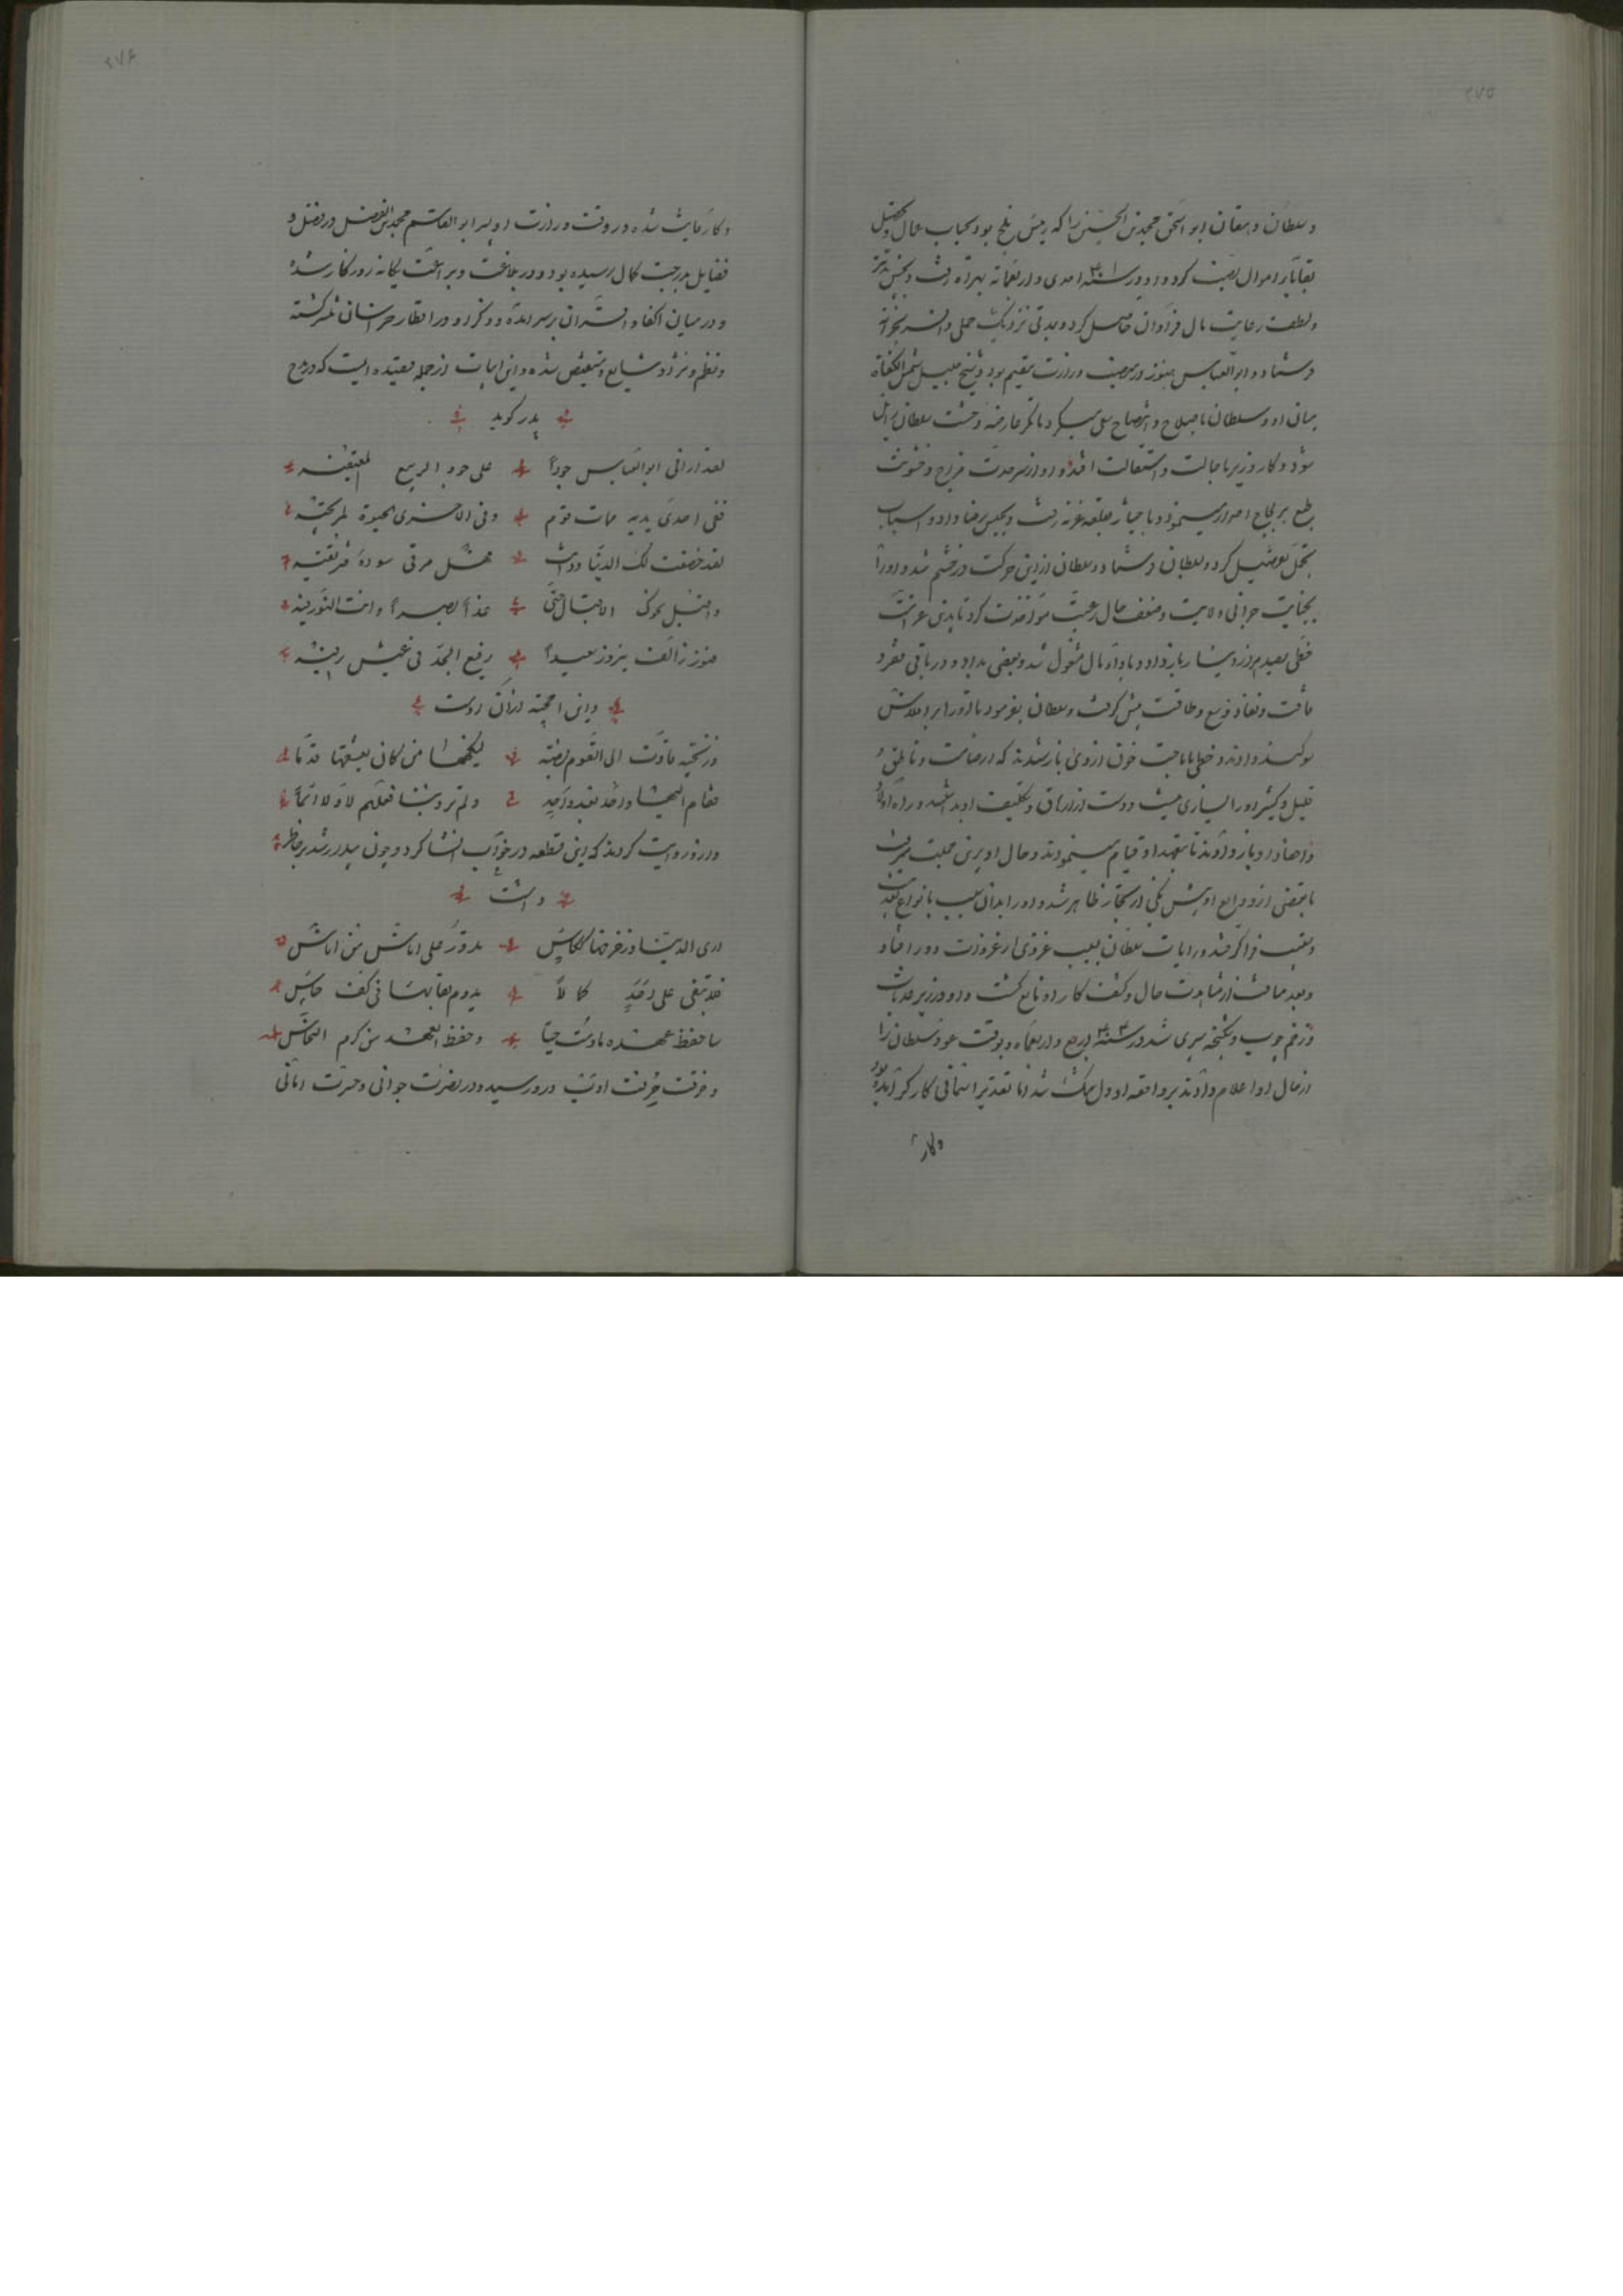 ۲۷۵
و سلطان دهقان ابو اسحق محمد بن الحسین را که رئیس بلخ بود بحساب عمال و تحصیل
بقایای اموال نصب کرد و او در سنه ۴۰۱ احدی و اربعمائه بهراة رفت و بحسن تدبیر
و لطف رعایت مال فراوان حاصل کرد و بمدتی نزدیک حملی وافر بخزانه
فرستاد و ابو العباس هنوز در منصب وزارت مقیم بود و شیخ جلیل شمس الکفاة
میان او و سلطان باصلاح و
شود و کار وزیر با حالت و استقالت افتد و او از سر حدت مزاج و خشونت
طبع بر لجاج اصرار مینمود و باختیار بقلعه غزنه رفت و بحبس رضا داد و اسباب
تجمل تفصیل کرد و بسلطان فرستاد و سلطان ازین حرکت در خشم شد و او را
بجنایت خرابی ولایت و ضعف حال رعیت مؤاخذت کرد تا بدین غرامت
خطی بصد هزار دینار باز داد و باداء مال مشغول شد و بعضی بداد و در باقی تفرد
فاقت و نفاد وسع و طاقت پیش گرفت و سلطان بفرمود تا او را بر افلاس
سوگند دادند و خطی باباحت خون از وی باز ستدند که از صامت و ناطق و
قلیل و کثیر او را یساری نیست و دست از ارهاق و تکلیف او بداشتند و راه اولاد
و احفاد او باز دادند تا بتعهد او قیام مینمودند و حال او برین جملت میرفت
تا بعضی از ودایع او پیش یکی از تجار ظاهر شد و او را بدان سبب بانواع تعذیب
و تعب فرا گرفتند و رایات سلطان بسبب غزوی از غزوات دور افتاد
و بعد مسافت از مشاهدت حال و کشف کار او مانع گشت و او در زیر عذبات
و زخم چوب و شکنجه سپری شد در سنه ۴۰۴ اربع و اربعمائه و بوقت عود سلطان را
از حال او اعلام دادند بر واقعه او دل تنگ شد اما تقدیر آسمانی کارگر آمده بود
و کار
۲۷۶
و کار کفایت شده و در وقت وزارت او پسر ابو القاسم محمد بن الفضل در فضل و
فضایل بدرجت کمال رسیده بود و در بلاغت و براعت یگانه روزگار شده
و در میان اکفا و اقران بر سر آمده و ذکر او در اقطار خراسان منتشر گشته
و نظم و نثر او شایع و مستفیض شده و این ابیات از جمله قصیده ایست که در مدح
پدر گوید
لقد ارانی ابو العباس جوداً علی جود الربیع
ففی احدی یدیه ممات قوم وفی الاخری الحیوة
لقد خضعت لک الدنیا ودانت
واقبل نحوک الاقبال حتی
وعش فی الف نیروز سعیداً رفیع الجد فی عیش
و این احجیه از آن اوست
وزنجیة مأوت الی القوم بضة لینکحها من کان یعشقها قدما
فقام الیها واحد بعد واحد ولم تر دینا فعلهم لا ولا اثماً
و ازو روایت کردند که این قطعه در خواب انشا کرد و چون بیدار شد بر خاطر
داشت
اری الدنیا وزخرفها ککاس تدور علی اناس من اناس
فلا تبقی علی احد کما لا یدوم بقائها فی کف حاس
ساحفظ عهده مادمت حیاً وحفظ العهد من کرم
و حرفت حرفت ادب در رسید و در نضرت جوانی و حسرت امانی